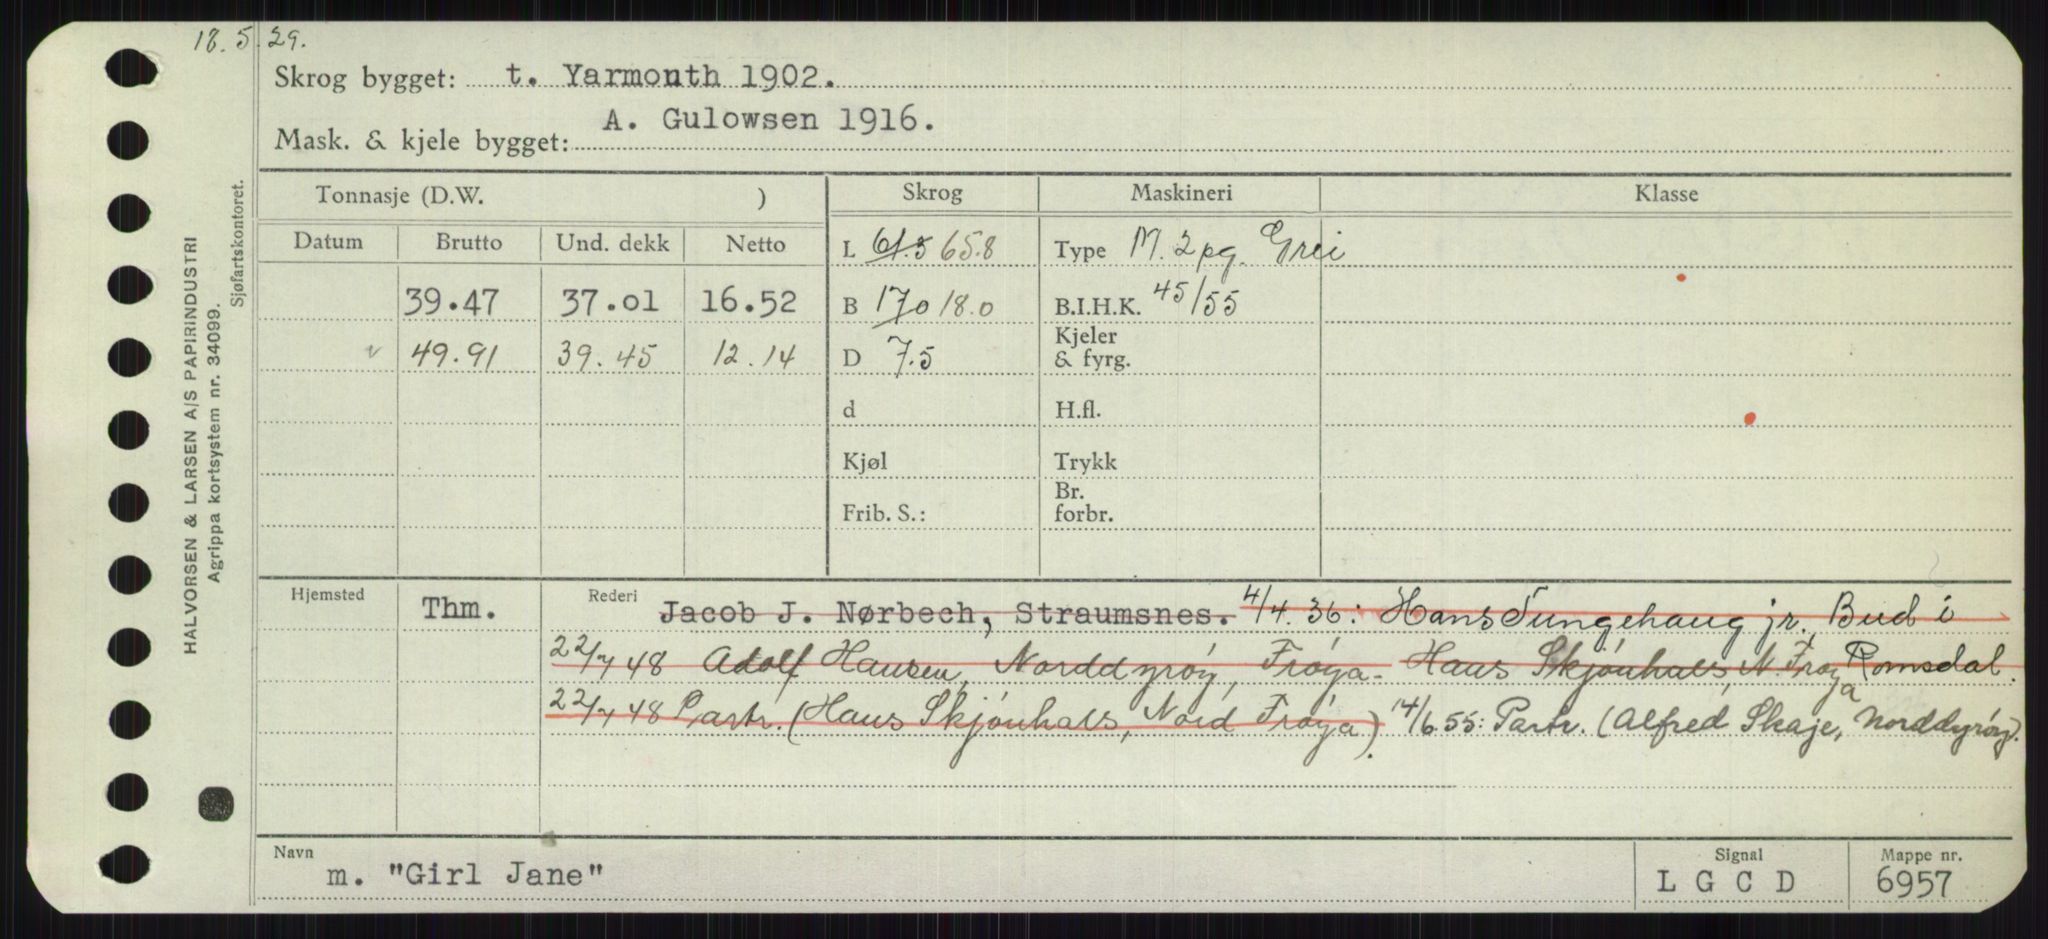 18.5.29.
Skrog bygget: t. Yarmonth 1902.
Mask. & kjele bygget: A. Gulowsen 1916.
HALVORSEN & LARSEN A/S PAPIRINDUSTRI
Agrippa kortsystem nr. 34099.
Sjøfartskontoret.
Tonnasje (D.W. ) Skrog Maskineri Klasse
Datum Brutto Und. dekk Netto L 61.5 65.8 Type M. 2 pg. Grei
39.47 37.01 16.52 B 17.0 18.0 B.I.H.K. 45/55
v 49.91 39.45 12.14 D 7.5 Kjeler & fyrg.
d H.fl.
Kjøl Trykk
Frib. S.: Br. forbr.
Hjemsted Thm. Rederi Jacob J. Nørbech, Straumsnes. 4/4.36: Hans Tungehaug jr. Bud i
22/7 48 Adolf Hansen, Norddyrøy, Frøya - Hans Skjønhals, N. Frøya Romsdal.
22/7 48 Partr. (Hans Skjønhals, Nord Frøya). 14/6.55: Partr. (Alfred Skaje, Norddyrøy).
Navn m. "Girl Jane" Signal L G C D Mappe nr. 6957